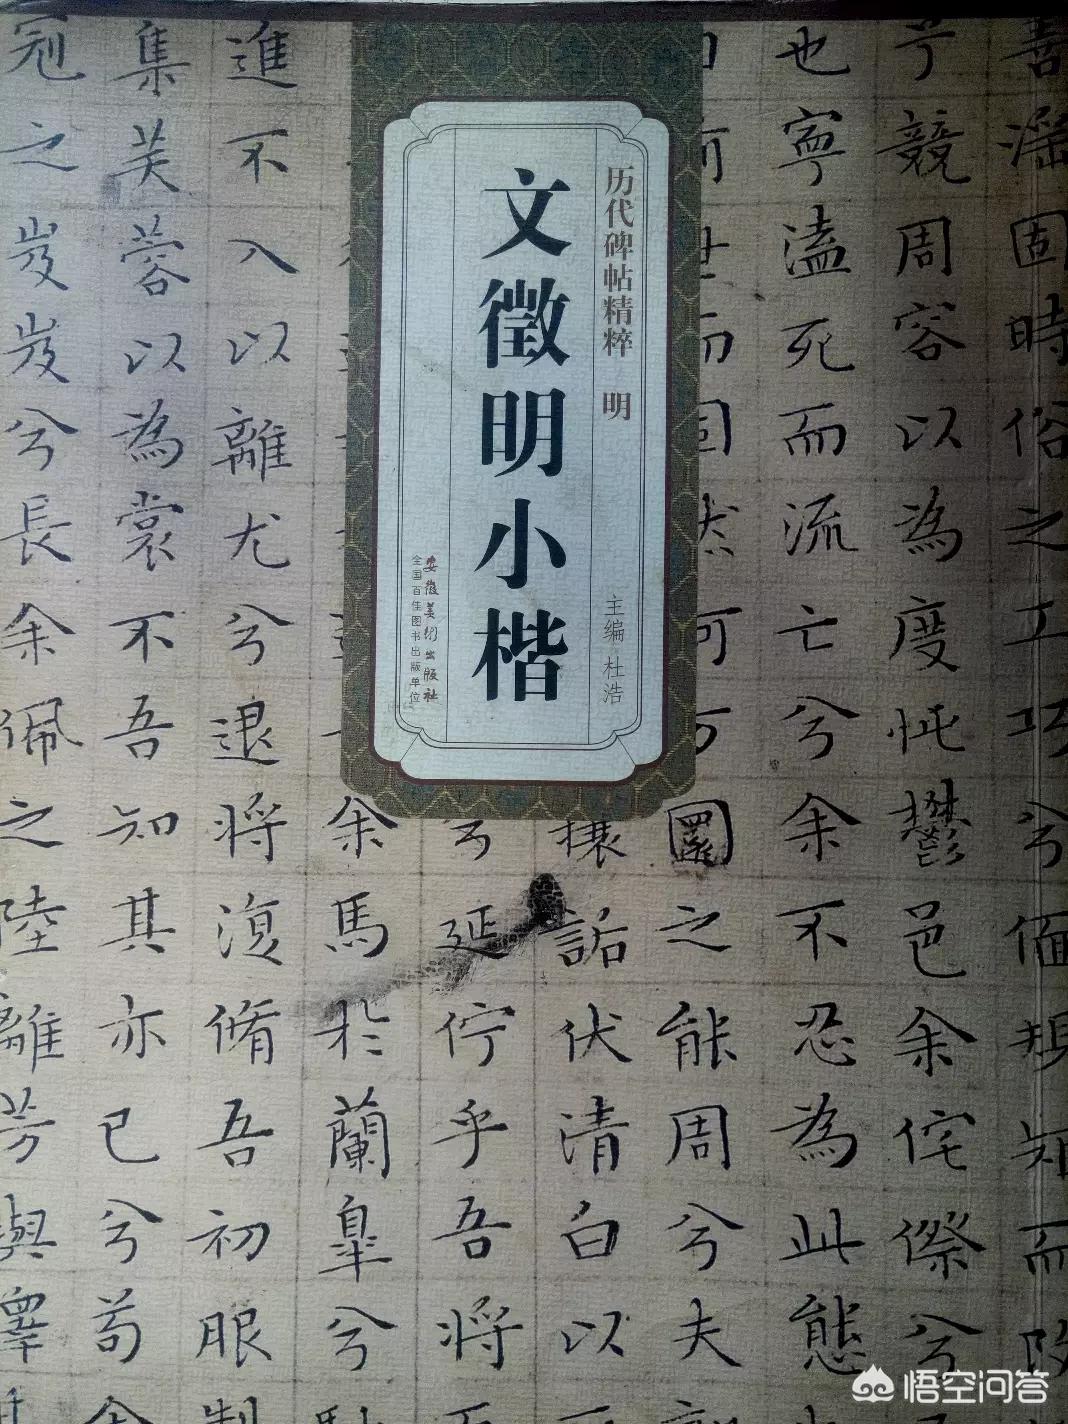 历代碑帖精粹 明
主编 杜浩
文徵明小楷
安徽美术出版社
全国百佳图书出版单位
善淫固時俗之工巧兮偭規矩而改
兮競周容以為度忳鬱邑余侘傺兮
也寧溘死而流亡兮余不忍為此態
圜之能周兮夫
攘詬伏清白以
兮延佇乎吾將
余馬於蘭皋兮
進不入以離尤兮退將復脩吾初服製
集芙蓉以為裳不吾知其亦已兮苟余
冠之岌岌兮長余佩之陸離芳與
悟空问答